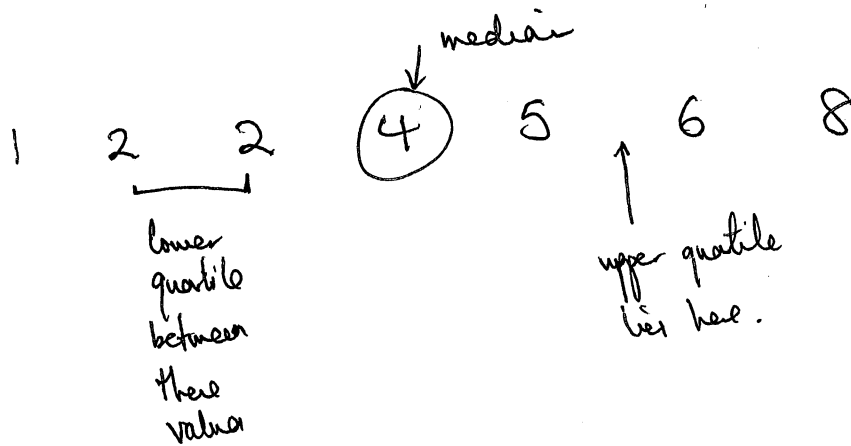 median
1 2 2 4 5 6 8
lower
quartile
between
these
values
upper quatile
lies here.